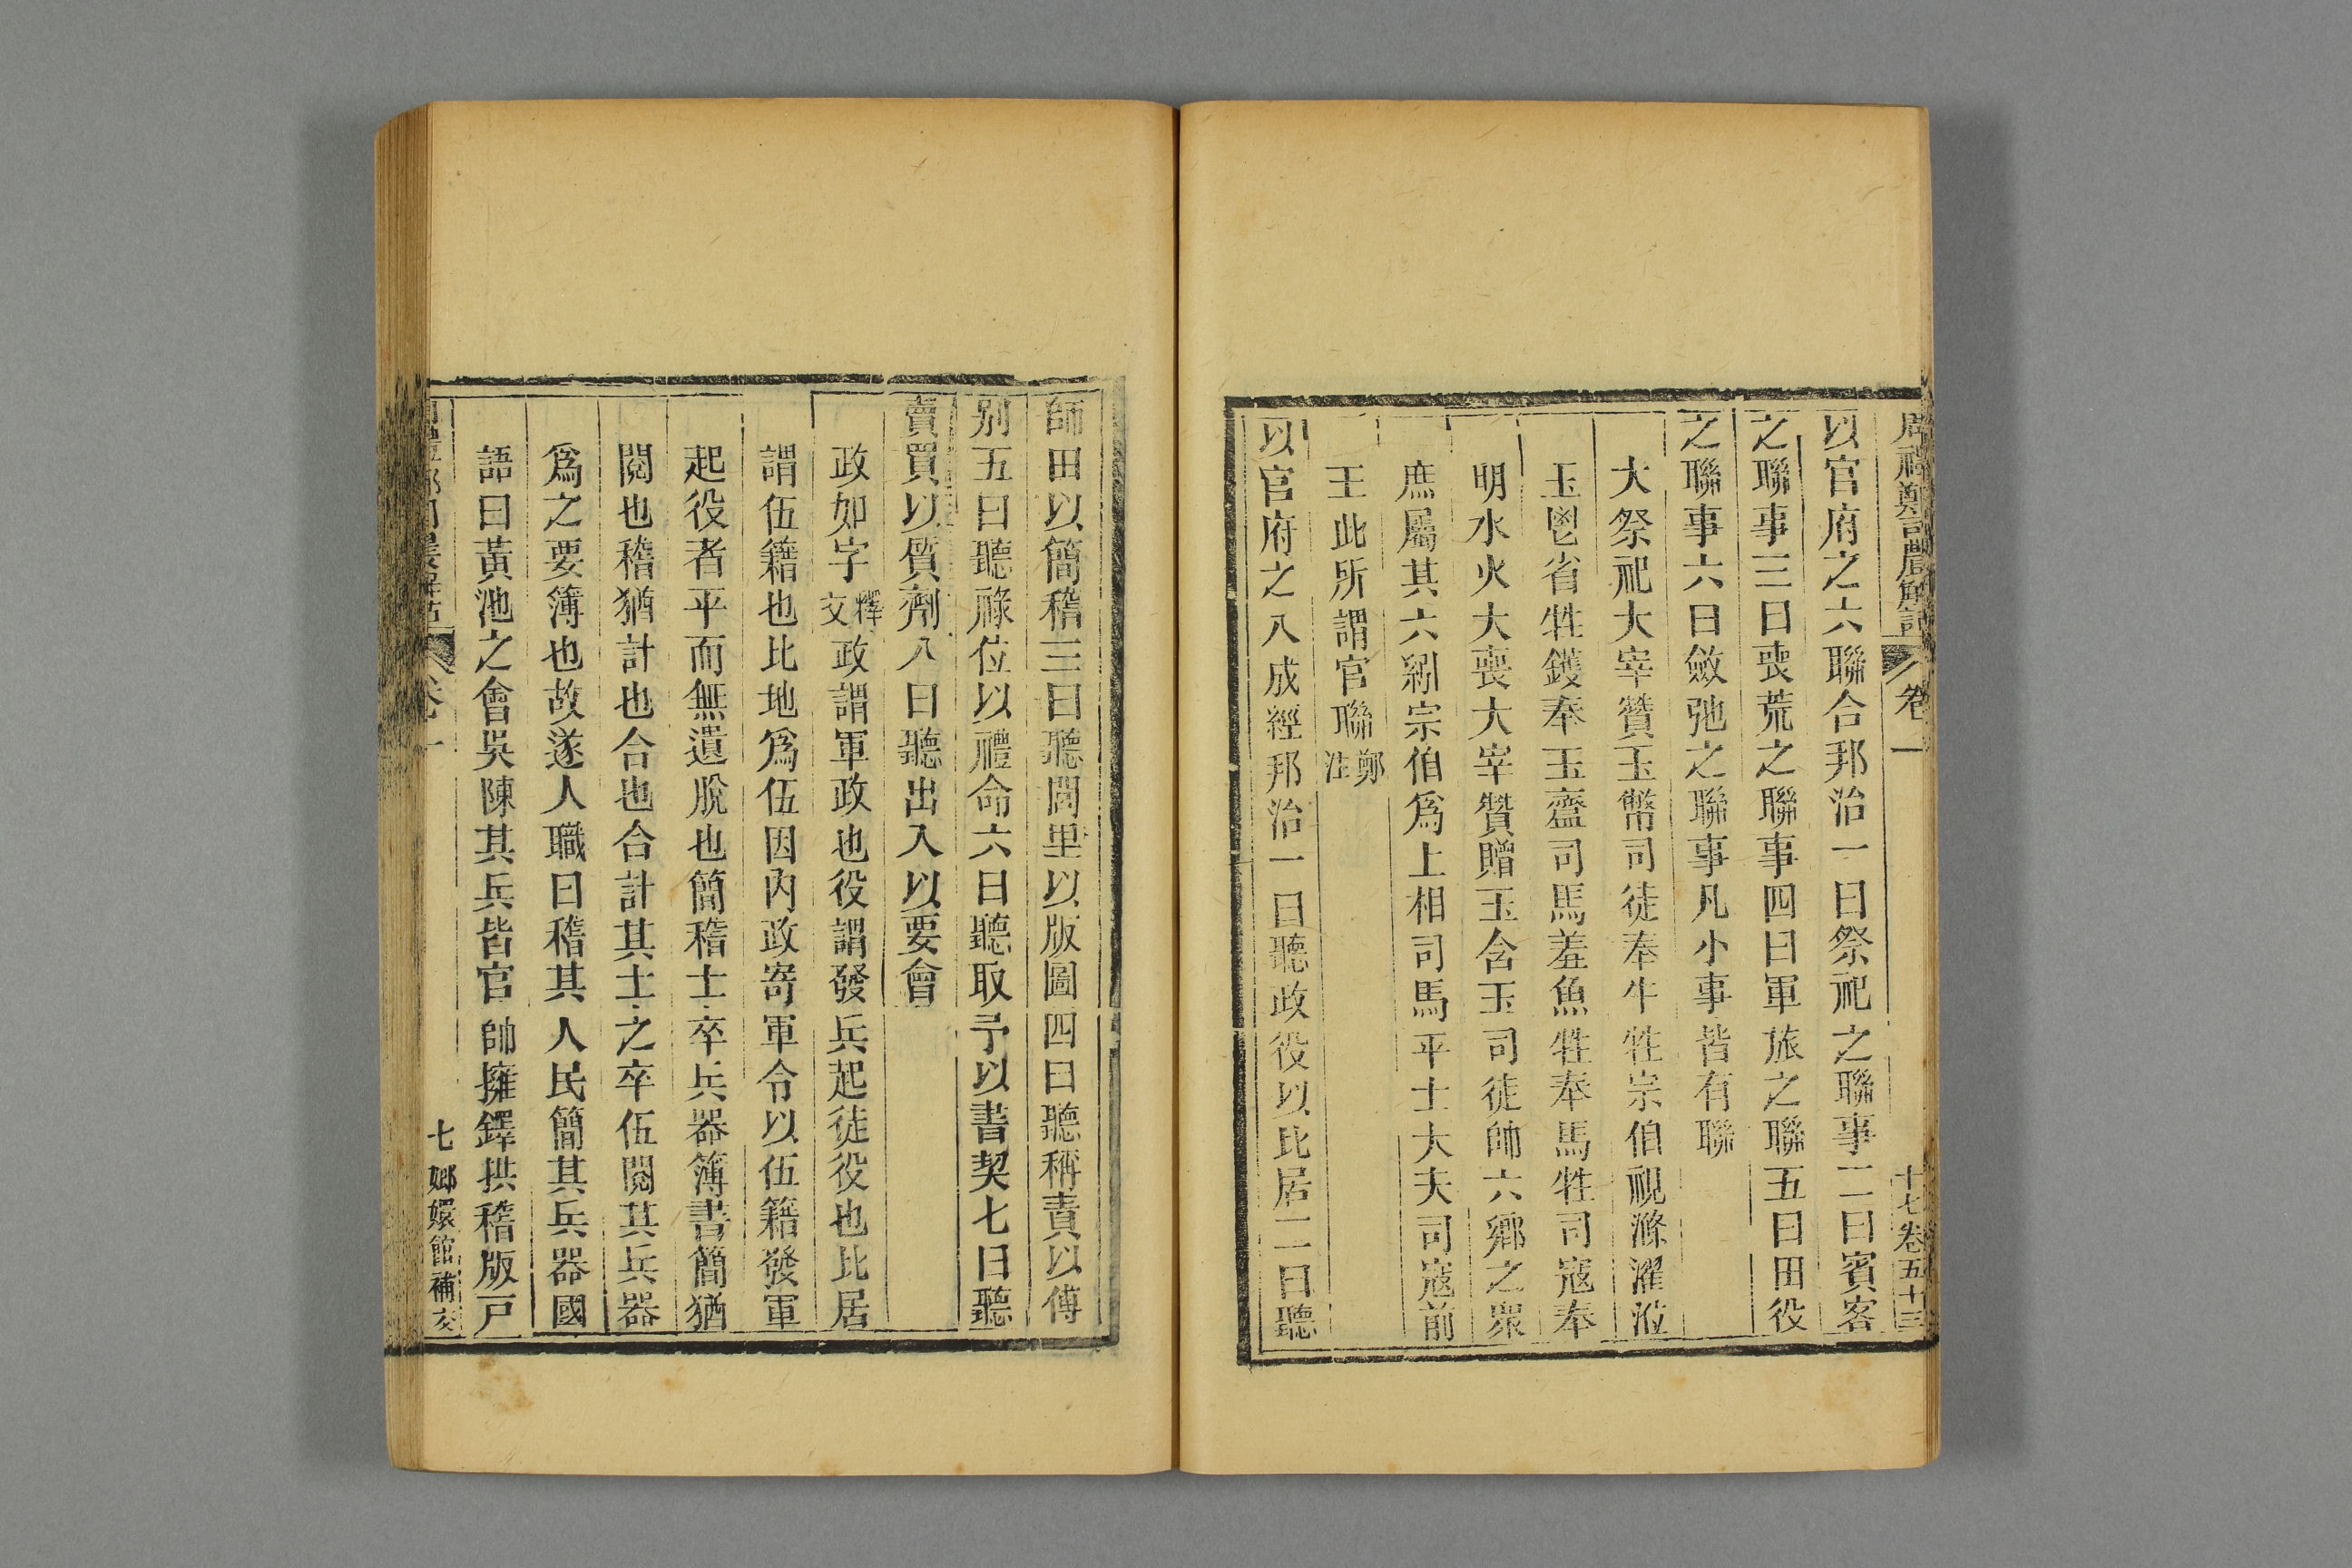 以官府之六聯合邦治一曰祭祀之聯事二曰賓客
之聯事三曰喪荒之聯事四曰軍旅之聯五曰田役
之聯事六曰斂弛之聯事凡小事皆有聯
大祭祀大宰贊玉幣司徒奉牛牲宗伯視滌濯涖
玉鬯省牲鑊奉玉齍司馬羞魚牲奉馬牲司寇奉
明水火大喪大宰贊贈玉含玉司徒帥六鄉之衆
庶屬其六綍宗伯爲上相司馬平士大夫司寇前
王此所謂官聯鄭注
以官府之八成經邦治一曰聽政役以比居二曰聽
師田以簡稽三曰聽閭里以版圖四曰聽稱責以傅
别五曰聽祿位以禮命六曰聽取予以書契七曰聽
賣買以質劑八曰聽出入以要會
政如字釋文政謂軍政也役謂發兵起徒役也比居
謂伍籍也比地爲伍因內政寄軍令以伍籍發軍
起役者平而無遺脫也簡稽士卒兵器簿書簡猶
閱也稽猶計也合也合計其士之卒伍閱其兵器
爲之要簿也故遂人職曰稽其人民簡其兵器國
語曰黃池之會吳陳其兵皆官帥擁鐸拱稽版戸
卷一
十七卷五十三
卷一
七 嫏嬛館補校